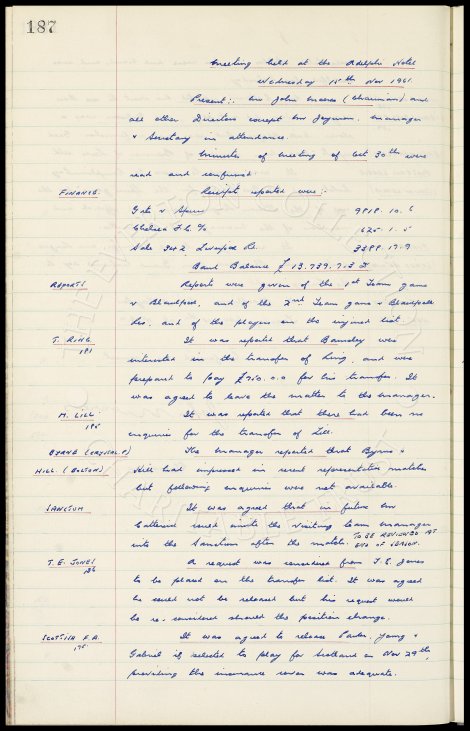 187
Meeting held at the Adelphi Hotel
Wednesday 15th Nov 1961.
Present:. Mr John Moores (Chairman) and
all other Directors except Mr Manager
& Secretary in attendance.
Minutes of meeting of Oct 30th were
read and confirmed
FINANCE. Receipts reported were:-
Gate v Spurs 9818. 10. 6
Chelsea F.C. % 625. 1. 5
Liverpool Rs.
Bank Balance £ 13.739. 7. 3
REPORTS Reports were given of the 1st Team game
v Blackpool, and of the 2nd Team game v Blackpool
Res, and of the players on the injured list.
T. RING. It was reported that Barnsley were
181
interested in the transfer of Ring, and were
prepared to pay £750. 0. 0 for his transfer. It
was agreed to leave the matter to the manager.
M. LILL It was reported that there had been no
185
enquiries for the transfer of Lill.
BYRNE (CRYSTAL P) The manager reported that Byrne &
HILL. (BOLTON) Hill had impressed in recent representative matches
but following enquiries were not available.
SANCTUM It was agreed that in future Mr
Catterick could invite the visiting team manager
into the Sanctum after the match. TO BE REVIEWED AT
END OF SEASON.
T. E. JONES A request was considered from T. E. Jones
186
to be placed on the transfer list. It was agreed
he could not be released but his request would
be re-considered should the position change.
SCOTTISH F.A. It was agreed to release Parker, Young &
Gabriel if selected to play for Scotland on Nov 29th,
providing the insurance cover was adequate.